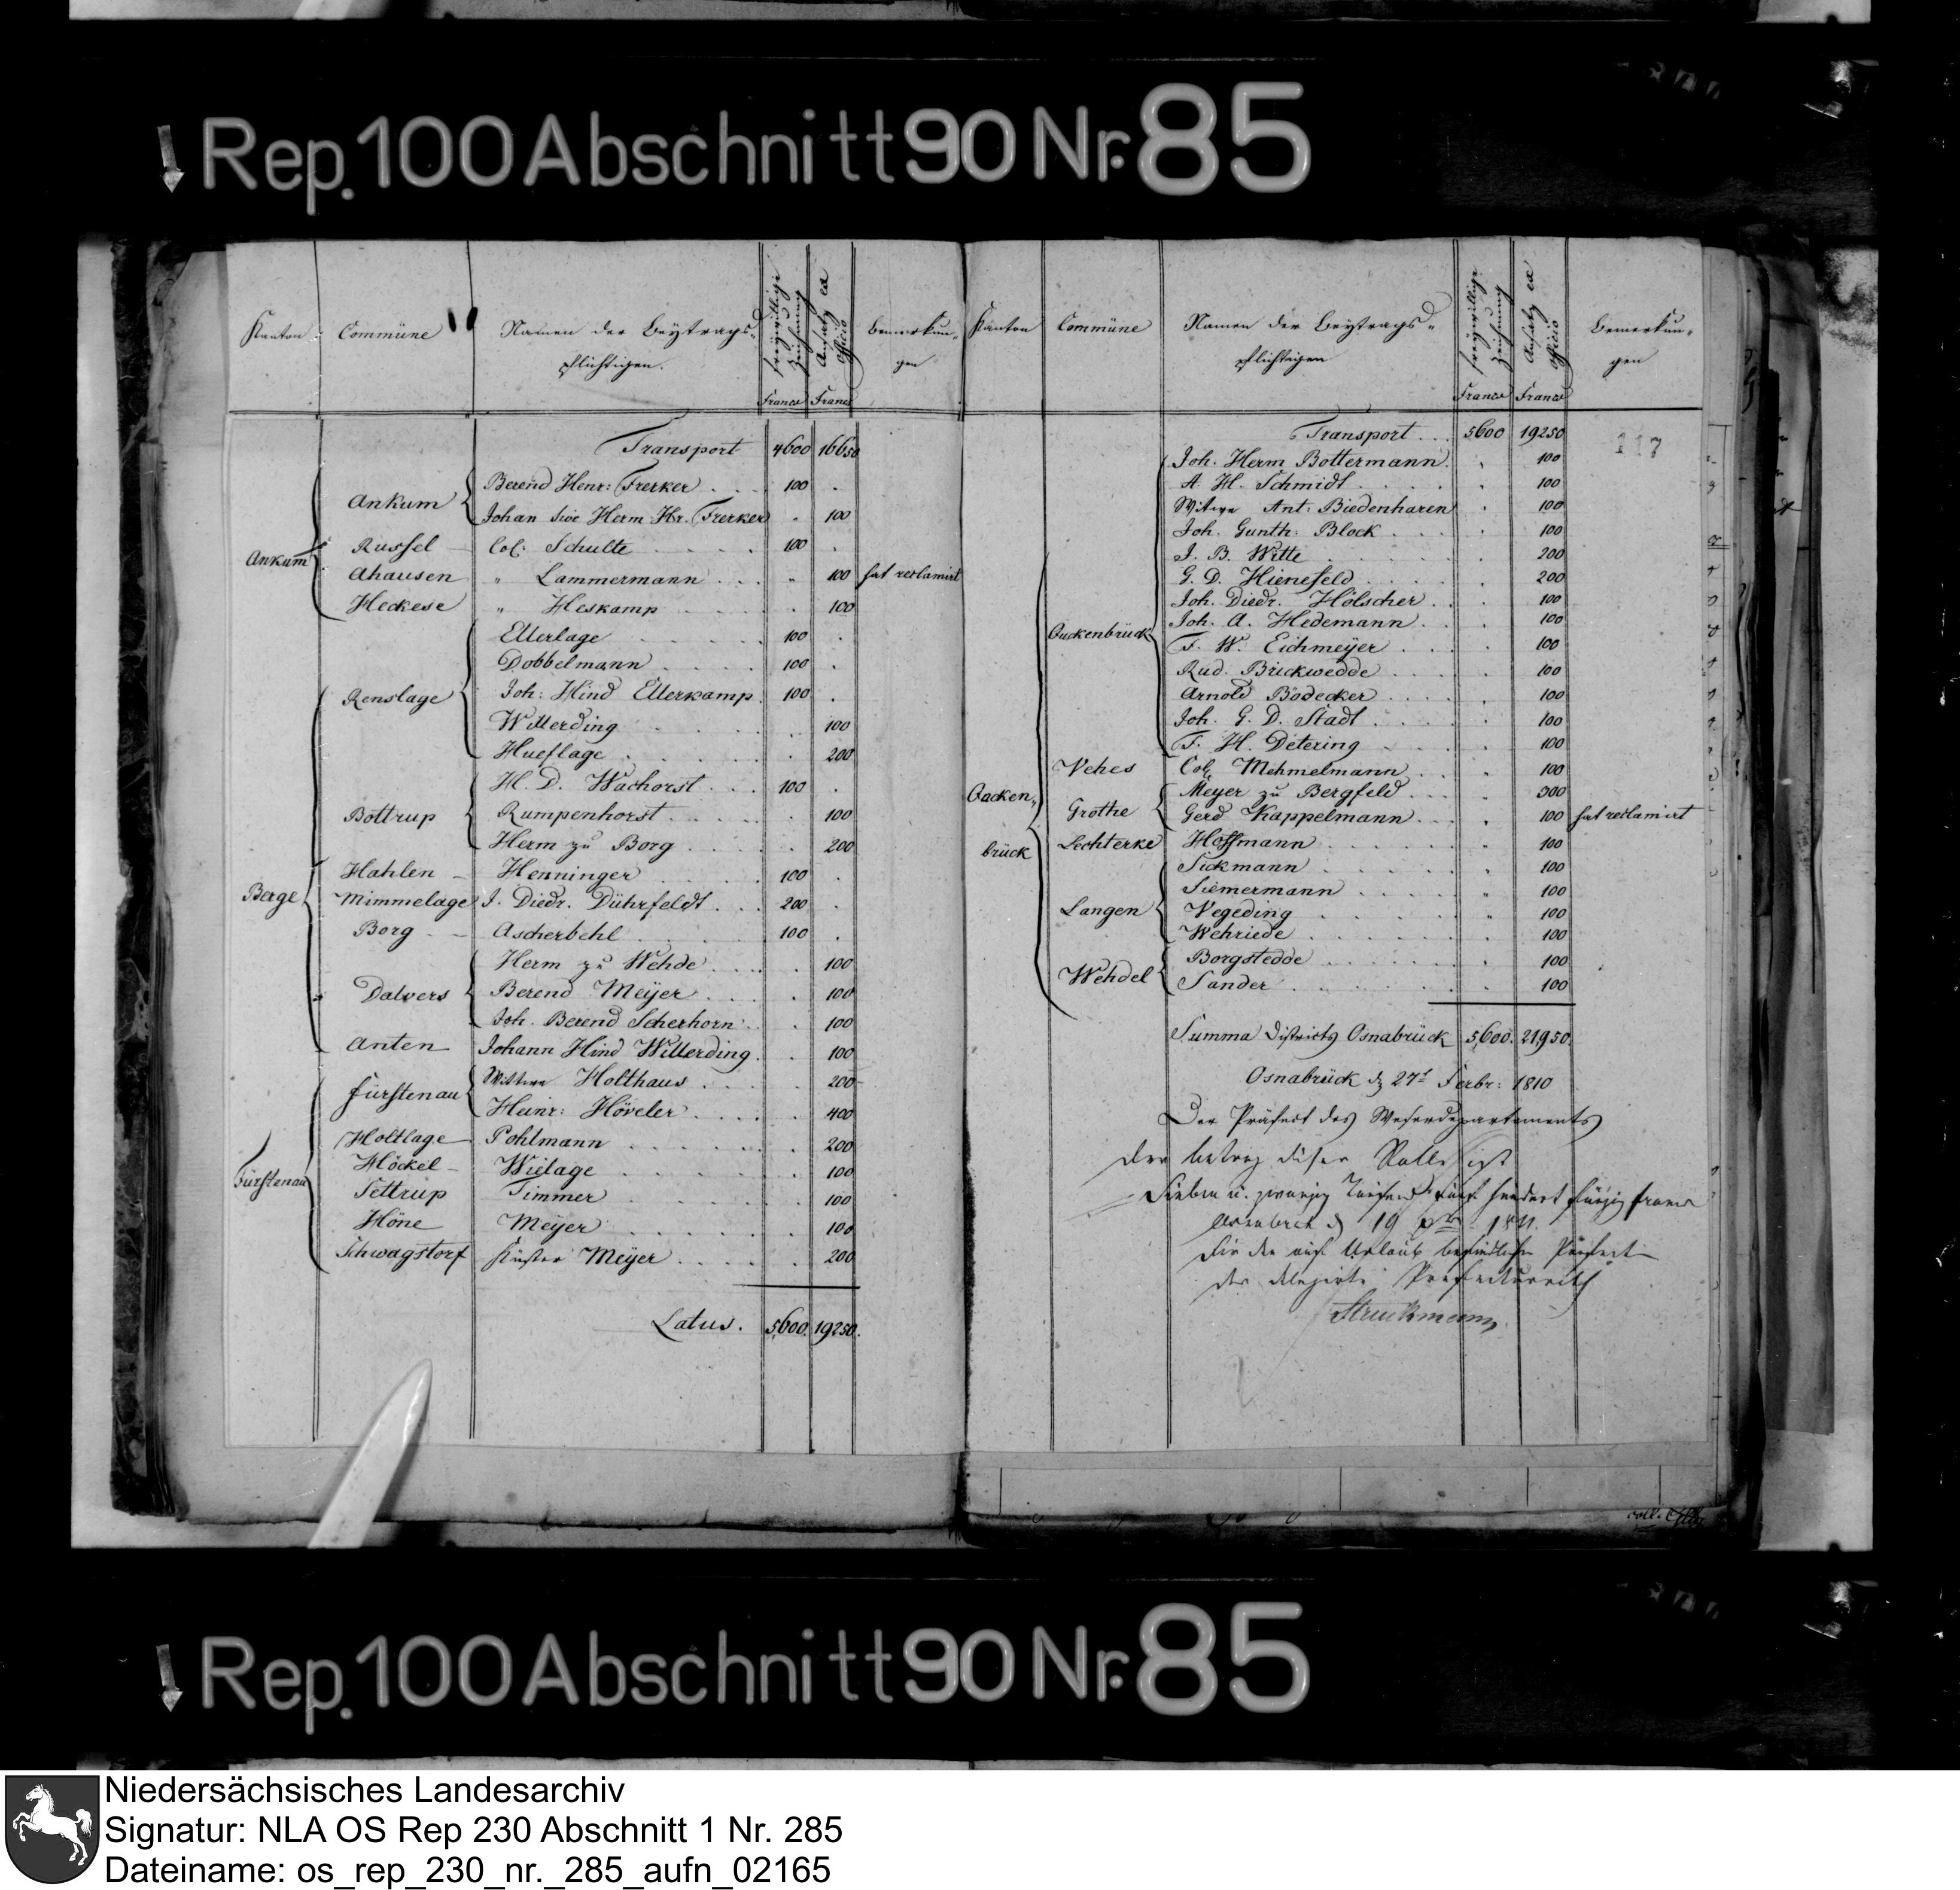 Rep. 100 Abschnitt 90 Nr. 85
Kanton Commüne Namen der Beytrags- freywillige Zeichnung Ansatz ex officio Bemerkun-
pflichtigen. gen
Francs Francs
Transport 4600 16650
Ankum Ankum Berend Henr: Frerker 100
Johan sive Herm Hr. Frerker 100
Russel Col. Schulte 100
Ahausen " Lammermann " 100 hat reclamirt
Heckese " Heskamp 100
Berge Renslage Ellerlage 100
Dobbelmann 100
Joh: Hind Ellerkamp 100
Willerding 100
Hueflage 200
Bottrup H. D. Wachorst 100
Rumpenhorst 100
Herm zu Borg 200
Hahlen Henninger 100
Mimmelage J. Diedr. Dührfeldt 200
Borg Ascherbehl 100
Dalvers Herm zu Wehde 100
Berend Meÿer 100
Joh. Berend Scherhorn 100
Anten Johann Hind Willerding 100
Fürstenau Fürstenau Wittwe Holthaus 200
Heinr: Höveler 400
Holtlage Pohlmann 200
Höckel Wielage 100
Settrup Timmer 100
Höne Meÿer 100
Schwagstorf Küster Meÿer 200
Latus. 5600. 19250.
Kanton Commüne Namen der Beytrags- freywillige Zeichnung Ansatz ex officio Bemerkun-
pflichtigen gen
Francs Francs
Transport 5600 19250
117
Quacken-brück Quckenbrück Joh. Herm Bottermann 100
A. H. Schmidt 100
Witwe Ant: Biedenharen 100
Joh. Gunth. Block 100
J. B. Witte 200
G. D. Hienefeld 200
Joh. Diedr. Hölscher 100
Joh. A. Hedemann 100
F. W. Eichmeÿer 100
Rud. Brickwedde 100
Arnold Bödecker 100
Joh. G. D. Stadt 100
F. H. Detering 100
Vehes Col. Mehmelmann 100
Grothe Meyer zu Bergfeld 300
Gerd Kappelmann 100 hat reclamirt
Lechterke Hoffmann 100
Langen Sickmann 100
Siemermann 100
Vegeding 100
Wehriede 100
Wehdel Borgstedde 100
Sander 100
Summa Districts Osnabrück 5,600. 21,950.
Osnabrück d. 27t 1810
Der Präfect des Weserdepartements
Der betrag dieser Rolle ist
Sieben u. zwanzig Tausend fünf hundert funfzig francs
Osnabrück d. 19 1811.
Für den auf Urlaub befindlichen Präfect
der delegirte Präfecturrath
Struckmann
Rep. 100 Abschnitt 90 Nr. 85
Niedersächsisches Landesarchiv
Signatur: NLA OS Rep 230 Abschnitt 1 Nr. 285
Dateiname: os_rep_230_nr._285_aufn_02165